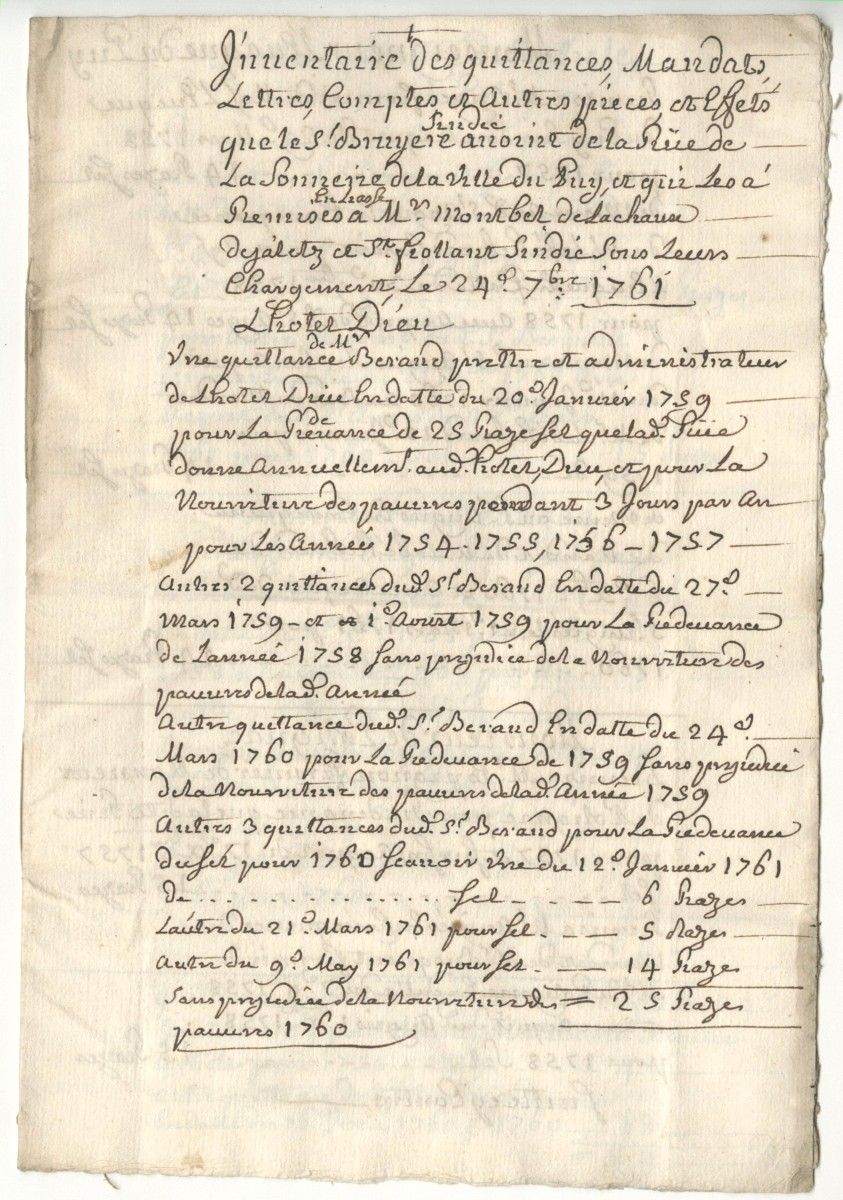 Jnventaire des quittances, Mandats,
Lettres Comptes et Autres pieces, et Effets
que le Sr. Bruyere sindic anoint de la Rüe de
La Sonnerie de la ville du Puy, et qui Les a
Remises en liasse a Mrs. Montbel de Lachaux
dejaletz et St. frollant Sindic Sous Leurs
Chargement, Le 24e. 7bre 1761
Lhotel Dieu
Vne quittance de Mr Berand prettre et administrateur
de Lhotel Dieu En datte du 20e. Janvier 1759
pour La Redevance de 25 Raze sel que lad. Rüe
donne Annuellemt. aud. hotel, Dieu, et pour La
Nourriture des pauvres pendant 3 Jours par An
pour Les Années 1754. 1755, 1756 - 1757
Autres 2 quittances dud. Sr. Berand En datte du 27e.
Mars 1759 - et 1e. Aoust 1759 pour La Redevance
de Lannée 1758 sans prejudice de la Nourriture des
pauvres de lad. Année
Autre quittance dud. Sr. Berand En datte du 24e.
Mars 1760 pour La Redevance de 1759 sans prejudice
de la Nourriture des pauvres de lad. Année 1759
Autres 3 quittances dud. Sr. Berand pour La Redevance
du sel pour 1760 Scauoir Vne du 12e. Janvier 1761
de . . . . . . . . . . . . . . . . sel - - - - 6 Razes
Lautre du 21e. Mars 1761 pour sel. - - 5 Razes
Autre du 9e. May 1761 pour sel. - - 14 Razes
sans prejudice de la Nourriture des = 25 Razes
pauvres 1760